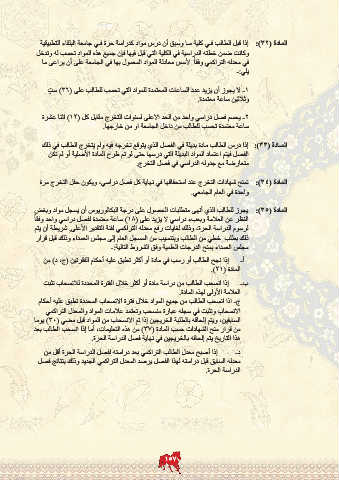 المادة (٣٢): إذا قبل الطالب في كلية ما وسبق أن درس مواد كدراسة حرة في جامعة البلقاء التطبيقية
وكانت ضمن خطته الدراسية في الكلية التي قبل فيها فإن جميع هذه المواد تحسب له وتدخل
في معدله التراكمي وفقاً لأسس معادلة المواد المعمول بها في الجامعة على أن يراعى ما
يلي:-
١- لا يجوز أن يزيد عدد الساعات المعتمدة للمواد التي تحسب للطالب على (٣٦) ست
وثلاثين ساعة معتمدة.
٢- يحسم فصل دراسي واحد من الحد الأعلى لسنوات التخرج مقابل كل (١٢) اثنتا عشرة
ساعة معتمدة تحسب للطالب من داخل الجامعة أو من خارجها.
المادة (٣٣): إذا درس الطالب مادة بديلة في الفصل الذي يتوقع تخرجه فيه ولم يتخرج الطالب في ذلك
الفصل فيتم اعتماد المواد البديلة التي درسها حتى لو تم طرح المادة الأصلية أو لم تكن
متعارضة مع جدوله الدراسي في فصل التخرج.
المادة (٣٤): تمنح شهادات التخرج عند استحقاقها في نهاية كل فصل دراسي، ويكون حفل التخرج مرة
واحدة في العام الجامعي.
المادة (٣٥): يجوز للطالب الذي أنهى متطلبات الحصول على درجة البكالوريوس أن يسجل مواد وبغض
النظر عن العلامة وبعبء دراسي لا يزيد على (١٨) ساعة معتمدة لفصل دراسي واحد وفقاً
لرسوم الدراسة الحرة، وذلك لغايات رفع معدله التراكمي لفئة التقدير الأعلى شريطة أن يتم
ذلك بطلب خطي من الطالب وبتنسيب من المسجل العام إلى مجلس العمداء وذلك قبل قرار
مجلس العمداء بمنح الدرجات العلمية وفق الشروط التالية:-
أ- إذا نجح الطالب أو رسب في مادة أو أكثر تطبق عليه أحكام الفقرتين (ج، د) من
المادة (٢١).
ب- إذا انسحب الطالب من دراسة مادة أو أكثر خلال الفترة المحددة للانسحاب تثبت
العلامة الأولى لهذه المادة.
ج- اذا انسحب الطالب من جميع المواد خلال فترة الانسحاب المحددة تطبق عليه أحكام
الانسحاب وتثبت في سجله عبارة منسحب وتعتمد علامات المواد والمعدل التراكمي
السابقين، ويتم إلحاقه بالطلبة الخريجين إذا تم الانسحاب من المواد قبل مضي (٣٠) يوما
من قرار منح الشهادات حسب المادة (٣٧) من هذه التعليمات، أما إذا انسحب الطالب بعد
هذا التاريخ يتم إلحاقه بالخريجين في نهاية فصل الدراسة الحرة.
د- إذا أصبح معدل الطالب التراكمي بعد دراسته لفصل الدراسة الحرة أقل من
معدله السابق قبل دراسته لهذا الفصل يرصد المعدل التراكمي الجديد وذلك بنتائج فصل
الدراسة الحرة.
١٥٧